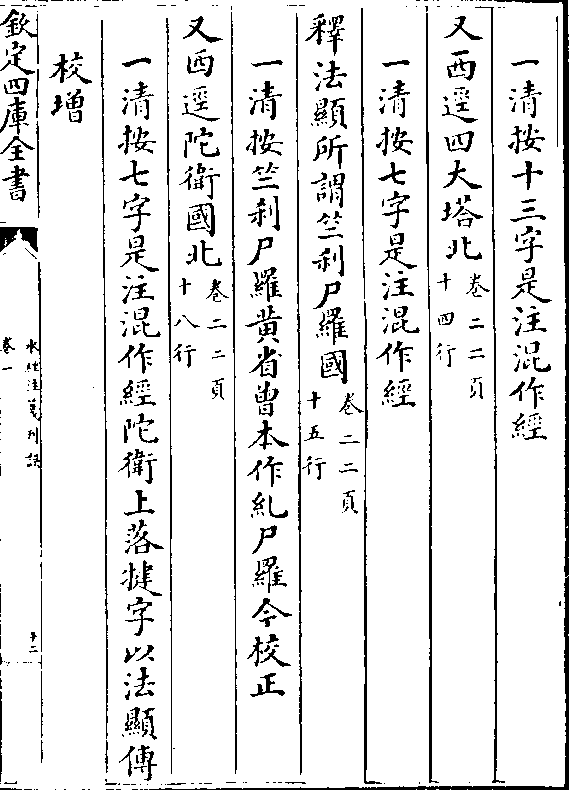 一清按十三字是注混作經
又西逕四大塔北卷二二頁十四行
一清按七字是注混作經
釋法顯所謂竺刹尸羅國卷二二頁十五行
一清按竺刹尸羅黄省曾本作糺尸羅今校正
又西逕陀衛國北卷二二頁十八行
一清按七字是注混作經陀衛上落犍字以法顯傳
校增
欽定四庫全書
水經注箋刋誤
卷一
十二